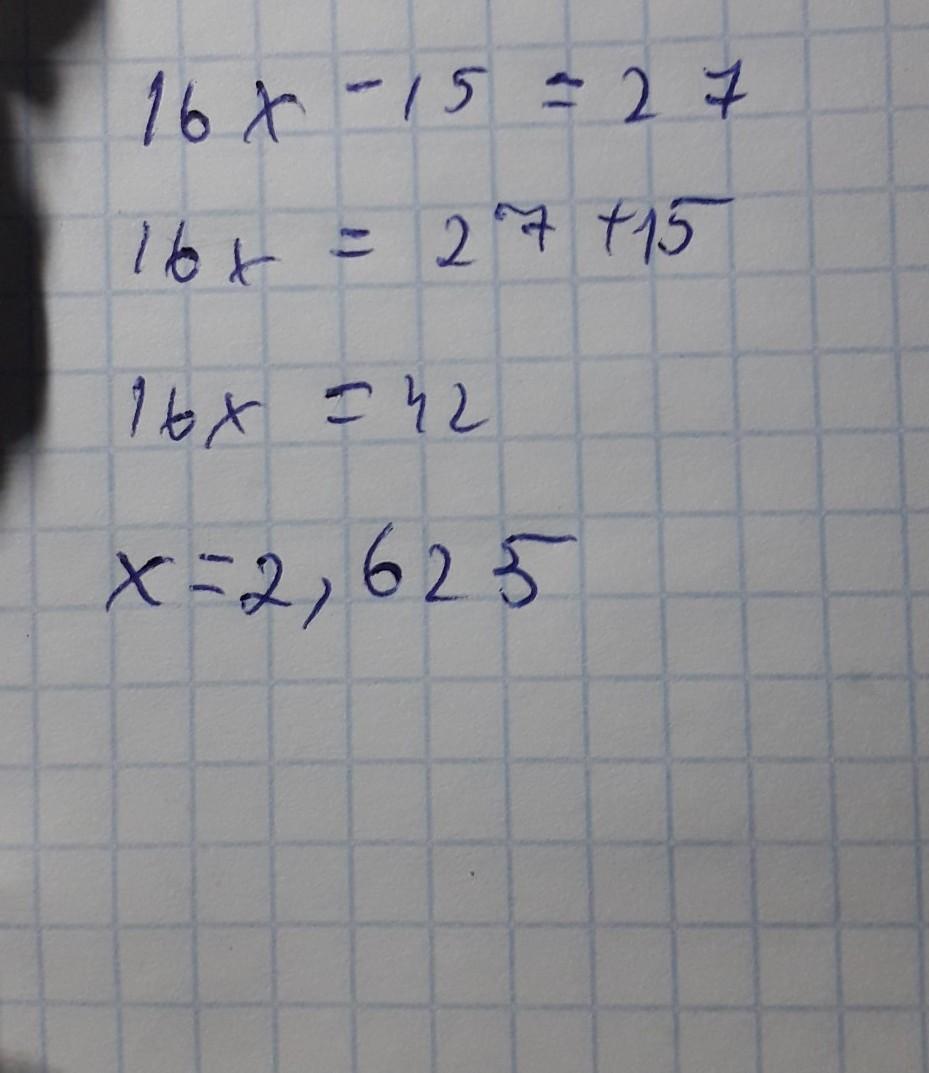 16x - 15 = 27
16x = 27 + 15
16x = 42
x = 2,625